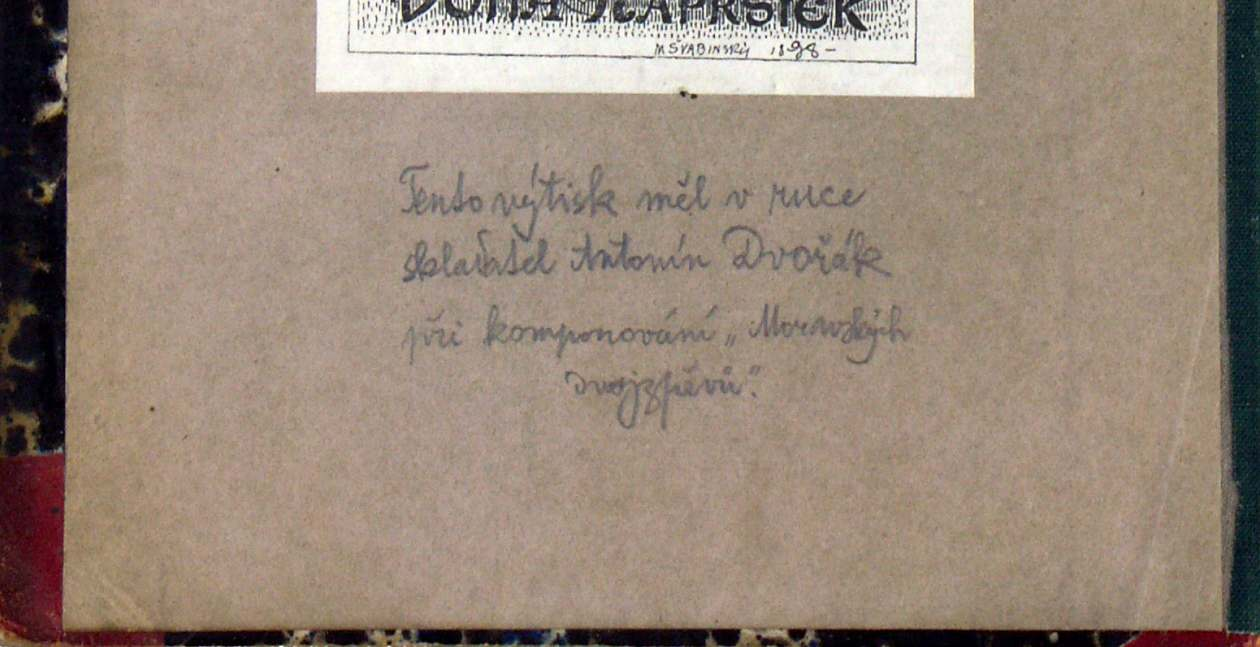 M ŠVABINSKÝ 1898-
Tento výtisk měl v ruce
skladatel Antonín Dvořák
při komponování „Moravských
dvojzpěvů".